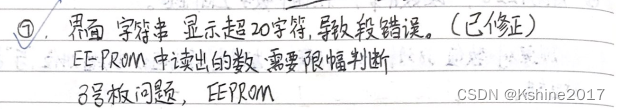 ⑦. 界面 字符串 显示超20字符,导致段错误。(已修正)
EEPROM 中读出的数 需要限幅判断
3号板问题, EEPROM
CSDN @Kshine2017